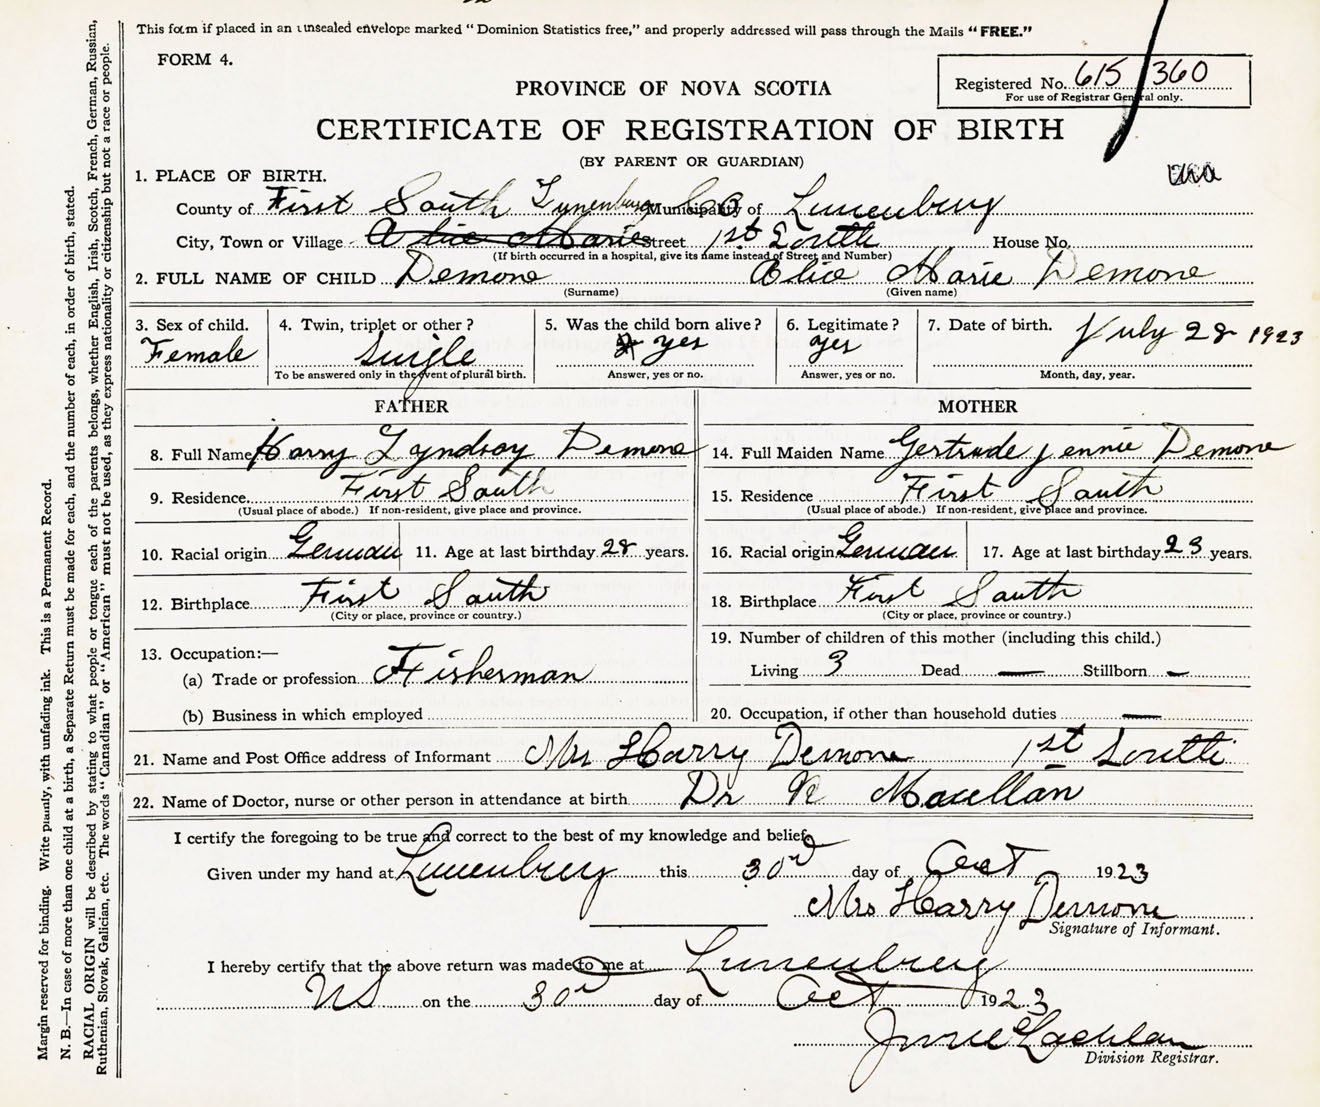 This form if placed in an unsealed envelope marked "Dominion Statistics free," and properly addressed will pass through the Mails "FREE."
FORM 4.
Registered No. 615 360
For use of Registrar General only.
PROVINCE OF NOVA SCOTIA
CERTIFICATE OF REGISTRATION OF BIRTH
(BY PARENT OR GUARDIAN)
1. PLACE OF BIRTH.
County of First South Lunenburg Co Municipality of Lunenburg
City, Town or Village Alice Marie Street 1st South House No.
(If birth occurred in a hospital, give its name instead of Street and Number)
2. FULL NAME OF CHILD Demone Alice Marie Demone
(Surname) (Given name)
3. Sex of child. 4. Twin, triplet or other? 5. Was the child born alive? 6. Legitimate? 7. Date of birth. July 28 1923
Female Single yes yes
To be answered only in the event of plural birth. Answer, yes or no. Answer, yes or no. Month, day, year.
FATHER MOTHER
8. Full Name Harry Lyndsay Demone 14. Full Maiden Name Gertrude Jennie Demone
9. Residence First South 15. Residence First South
(Usual place of abode.) If non-resident, give place and province. (Usual place of abode.) If non-resident, give place and province.
10. Racial origin German 11. Age at last birthday 28 years. 16. Racial origin German 17. Age at last birthday 23 years.
12. Birthplace First South 18. Birthplace First South
(City or place, province or country.) (City or place, province or country.)
13. Occupation:— 19. Number of children of this mother (including this child.)
(a) Trade or profession Fisherman Living 3 Dead — Stillborn —
(b) Business in which employed 20. Occupation, if other than household duties —
21. Name and Post Office address of Informant Mrs Harry Demone 1st South
22. Name of Doctor, nurse or other person in attendance at birth Dr
I certify the foregoing to be true and correct to the best of my knowledge and belief.
Given under my hand at Lunenburg this 30 day of Oct 1923
Mrs Harry Demone
Signature of Informant.
I hereby certify that the above return was made to me at Lunenburg
NS on the 30 day of Oct 1923
Division Registrar.
Margin reserved for binding. Write plainly, with unfading ink. This is a Permanent Record.
N. B.—In case of more than one child at a birth, a Separate Return must be made for each, and the number of each, in order of birth, stated.
RACIAL ORIGIN will be described by stating to what people or tongue each of the parents belongs, whether English, Irish, Scotch, French, German, Russian,
Ruthenian, Slovak, Galician, etc. The words "Canadian" or "American" must not be used, as they express nationality or citizenship but not a race or people.